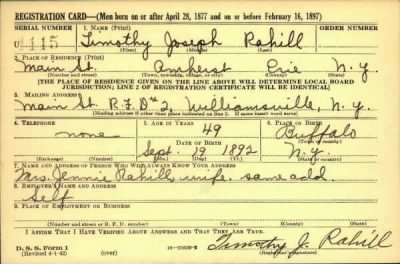 REGISTRATION CARD—(Men born on or after April 28, 1877 and on or before February 16, 1897)
SERIAL NUMBER 1. NAME (Print) ORDER NUMBER
U 115 Timothy Joseph Rahill
(First) (Middle) (Last)
2. PLACE OF RESIDENCE (Print)
Main St. Amherst Erie N.Y.
(Number and street) (Town, township, village, or city) (County) (State)
[THE PLACE OF RESIDENCE GIVEN ON THE LINE ABOVE WILL DETERMINE LOCAL BOARD
JURISDICTION; LINE 2 OF REGISTRATION CERTIFICATE WILL BE IDENTICAL]
3. MAILING ADDRESS
Main St. R.F.D#2, Williamsville, N.Y.
[Mailing address if other than place indicated on line 2. If same insert word same]
4. TELEPHONE 5. AGE IN YEARS 6. PLACE OF BIRTH
none 49 Buffalo
DATE OF BIRTH (Town or county)
Sept. 19 1892 N.Y.
(Exchange) (Number) (Mo.) (Day) (Yr.) (State or country)
7. NAME AND ADDRESS OF PERSON WHO WILL ALWAYS KNOW YOUR ADDRESS
Mrs. Jennie Rahill, wife. same add
8. EMPLOYER'S NAME AND ADDRESS
Self
9. PLACE OF EMPLOYMENT OR BUSINESS
(Number and street or R. F. D. number) (Town) (County) (State)
I AFFIRM THAT I HAVE VERIFIED ABOVE ANSWERS AND THAT THEY ARE TRUE.
D. S. S. Form 1
(Revised 4-1-42) (over) Timothy J. Rahill
(Registrant's signature)